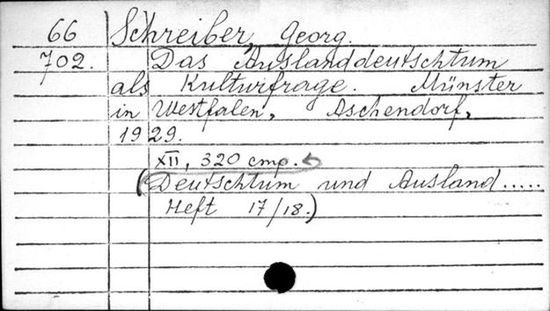 66 Schreiber, Georg.
702. Das Auslanddeutschtum
als Kulturfrage. Münster
in Westfalen, Aschendorf,
1929.
XII, 320 стр.
(Deutschtum und Ausland.....
Heft 17/18.)